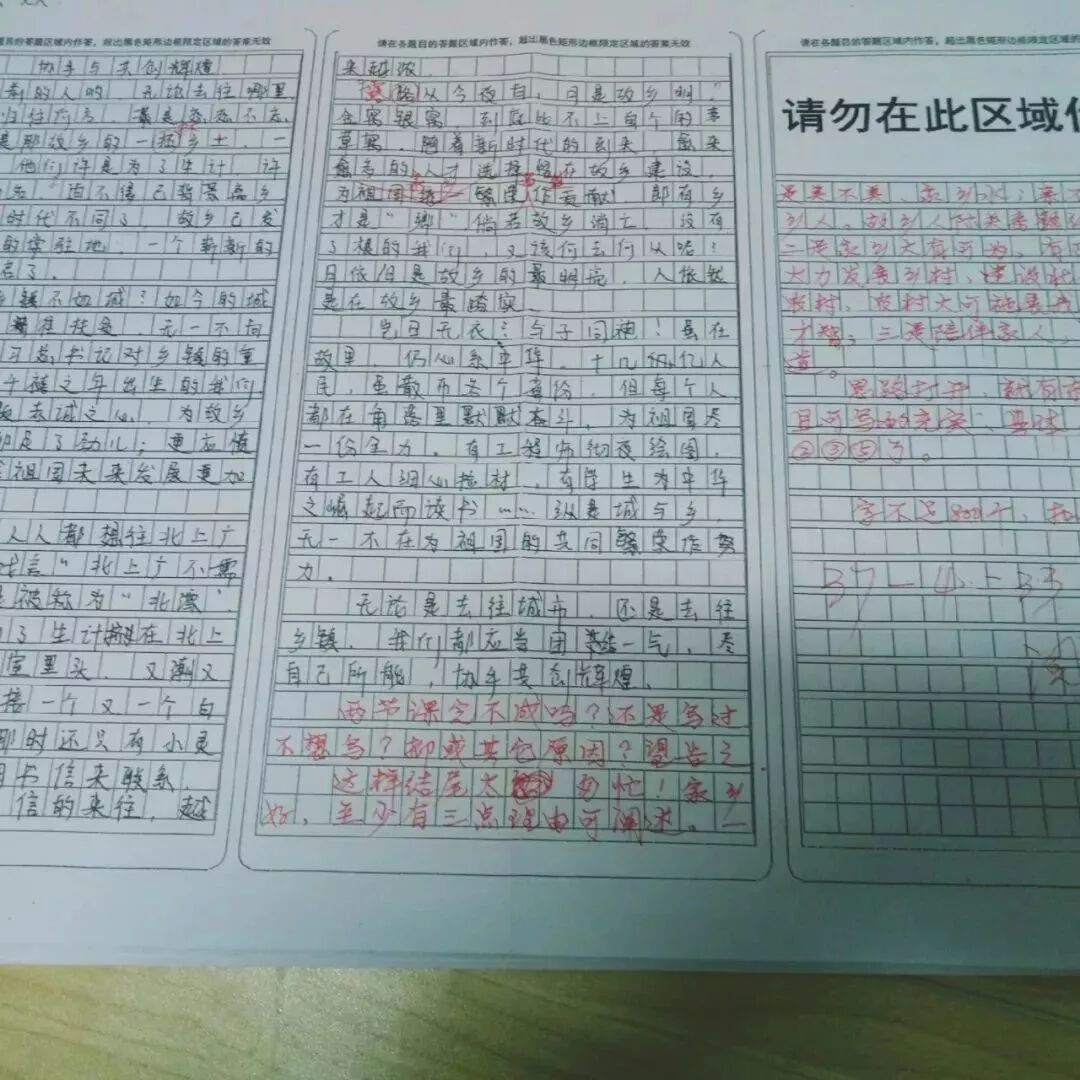 题目的答题区域内作答，超出黑色矩形边框限定区域的答案无效
协手与共创辉煌
的人的，无论去往哪里
是那故乡的一抔乡土，一
他们许是为了生计，许
时代不同了，故乡已发
的常驻地，一个崭新的
乡镇不如城？如今的城
准扶贫，无一不向
习总书记对乡镇的重
千禧之年出生的我们
表诚之心，为故乡
卯足了劲儿；更应值
祖国未来发展更加
人人都想往北上广
信“北上广不需
是被称为“北漂”
了生计挤在北上
室里头，又潮又
接一个又一个白
那时还只有小灵
用书信来联系，
信的来往，越
请在各题目的答题区域内作答，超出黑色矩形边框限定区域的答案无效
来越浓。
“露从今夜白，月是故乡明。”
金窝银窝，到底比不上自个的草
草窝。随着新时代的到来，愈来
愈多的人才选择留在故乡建设，
为祖国繁荣作贡献。即有乡
才是“乡”，倘若故乡消亡，没有
了根的我们，又该何去何从呢？
月依旧是故乡的最明亮，人依然
是在故乡最踏实。
岂曰无衣？与子同袍！虽在
故里，仍心系中华。十几亿人
民，虽散布各个省份，但每个人
都在角落里默默奋斗，为祖国尽
一份全力。有工程师彻夜绘图，
有工人细心捡材，有学生为中华
之崛起而读书……纵是城与乡，
无一不在为祖国的共同繁荣作努
力。
无论是去往城市，还是去往
乡镇，我们都应当团结一气，尽
自己所能，协手共创辉煌。
两节课完不成吗？还是写过
不想写？抑或其它原因？望告之
这样结尾太匆忙！家乡
好，至少有三点理由可阐述。一
请在各题目的答题区域内作答，超出黑色矩形边框限定区域的
请勿在此区域
是美不美，家乡水；亲不
乡人。故乡人
二是家乡大有可为，有
大力发展乡村，建设
农村，农村大可施展
才智；三是陪伴家人，
道。
思路打开，就有
且可写的充实、具体
②③⑤了。
字不足800个，扣
37-4=33